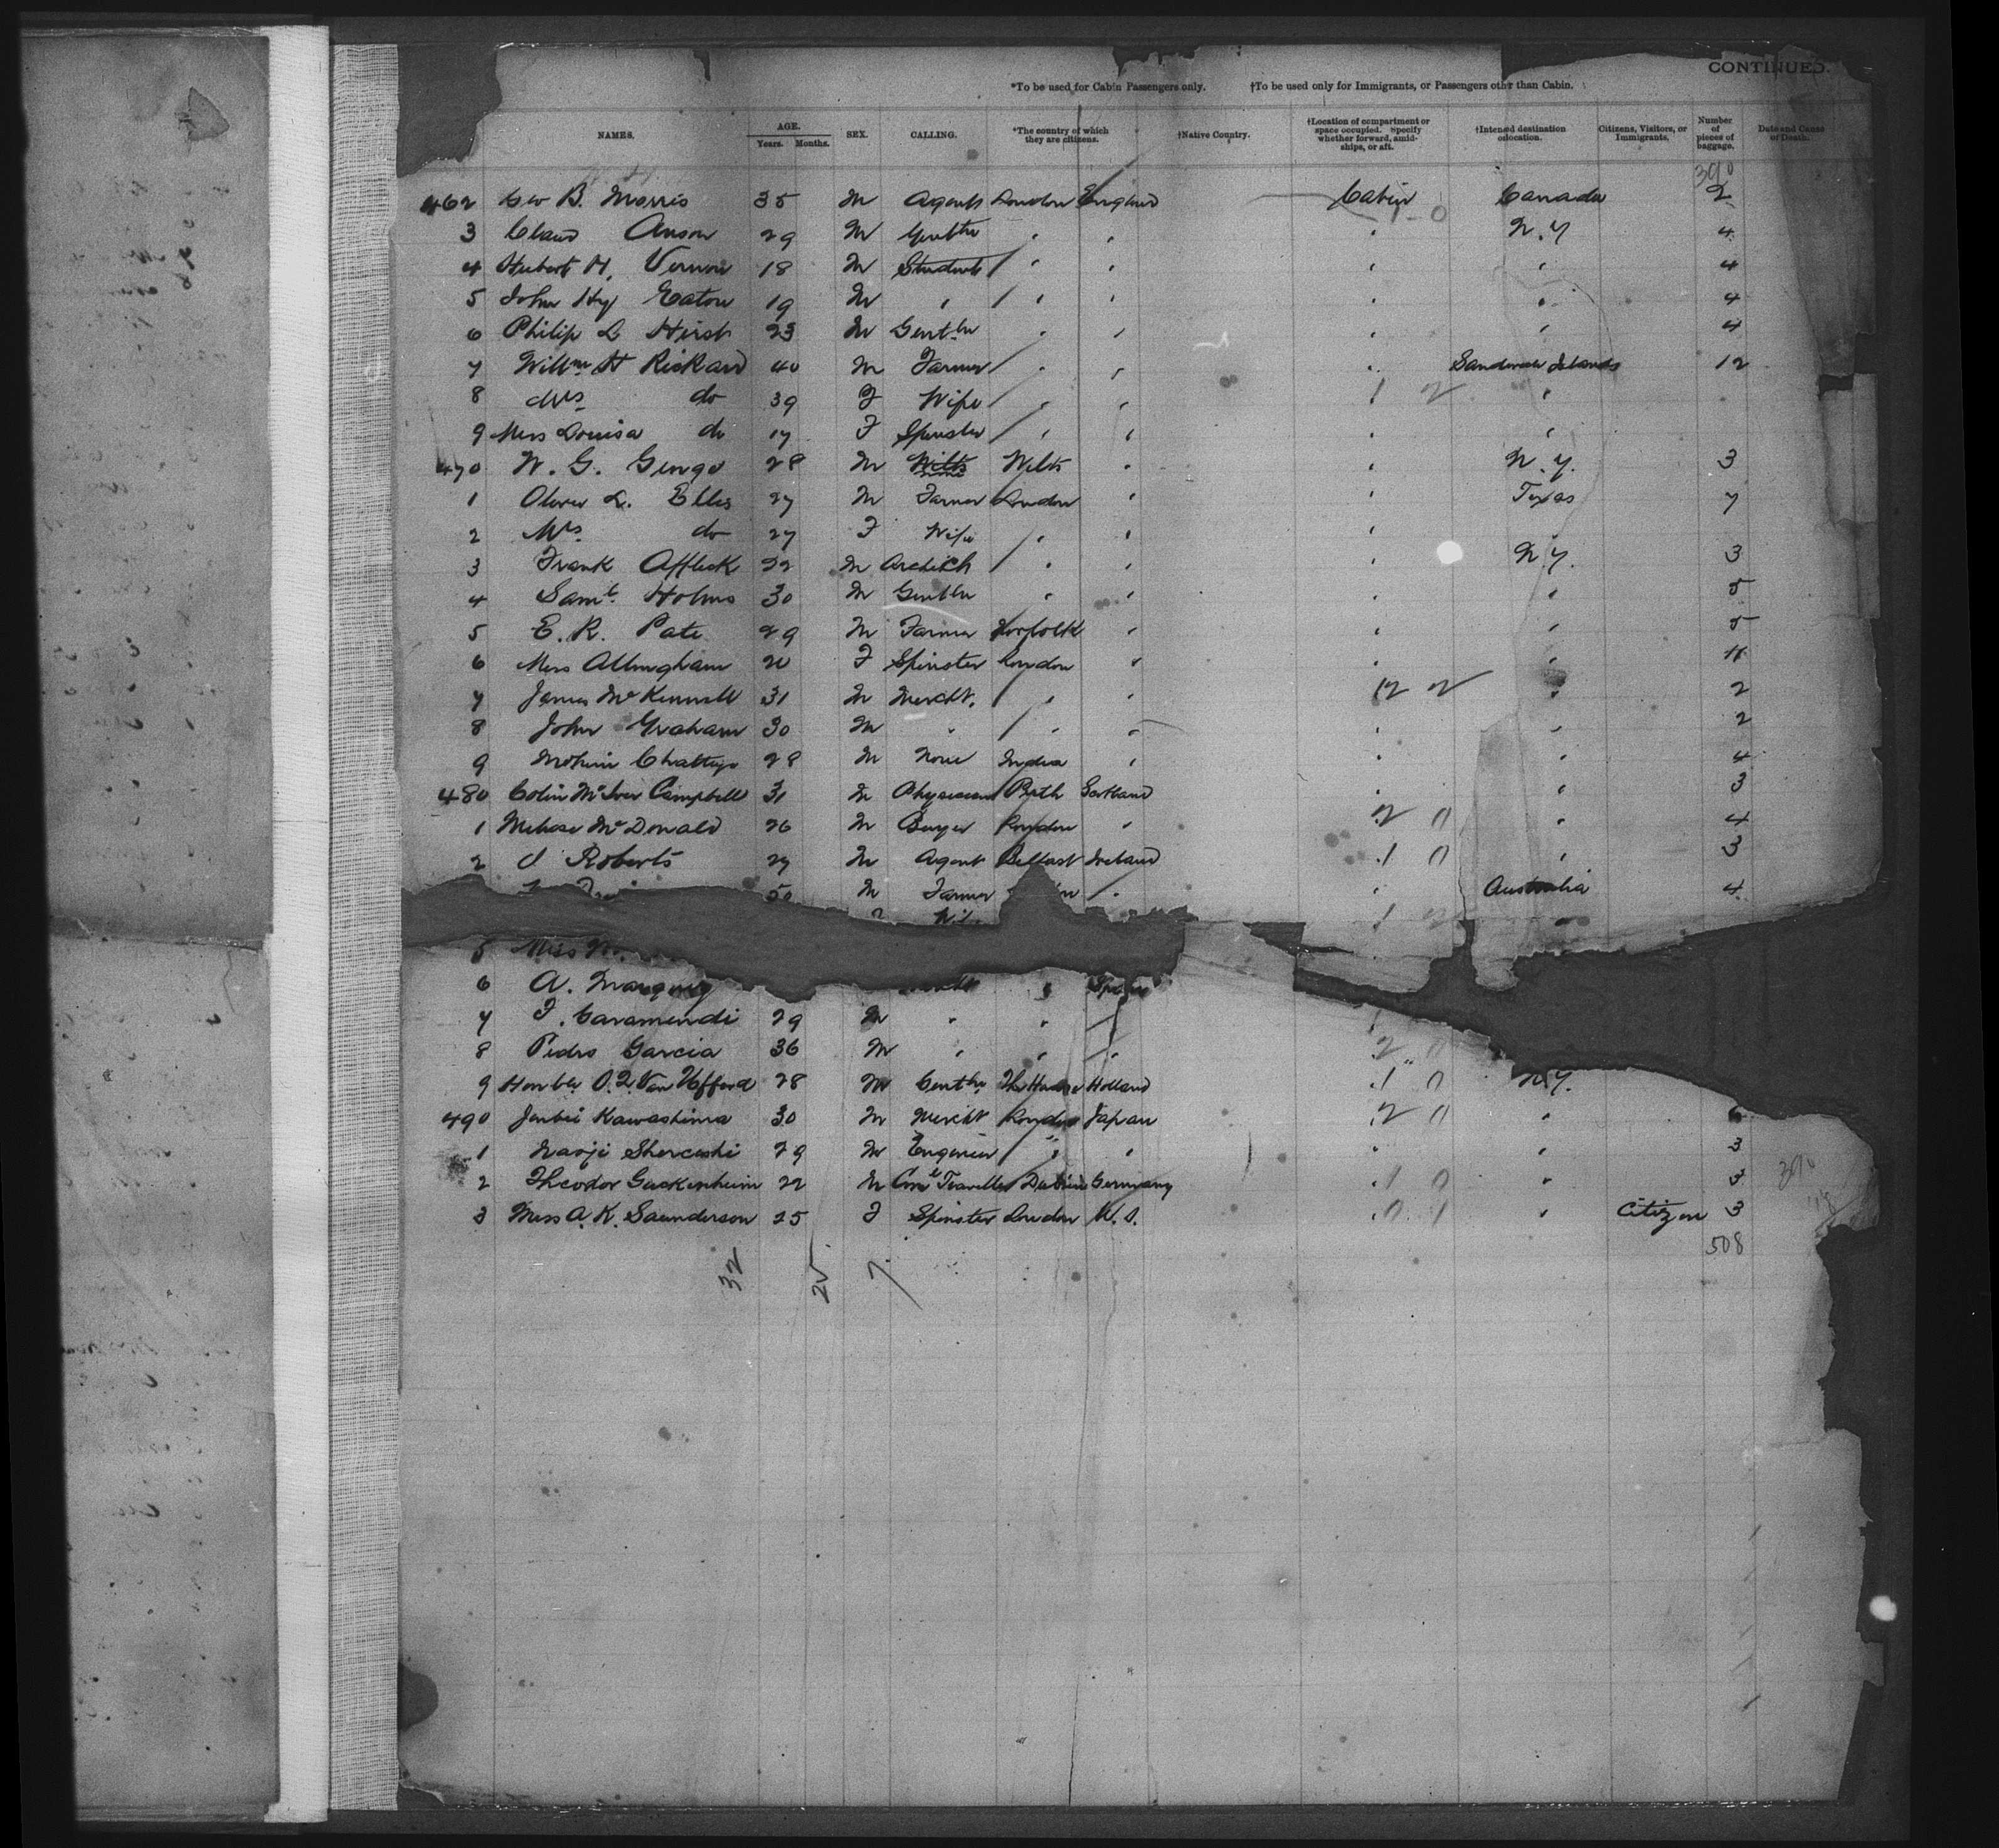 CONTINUED.
*To be used for Cabin Passengers only. †To be used only for Immigrants, or Passengers other than Cabin.
NAMES. AGE. Years. Months. SEX. CALLING. *The country of which they are citizens. †Native Country. †Location of compartment or space occupied. Specify whether forward, amidships, or aft. †Intended destination or location. Citizens, Visitors, or Immigrants. Number of pieces of baggage. Date and Cause of Death.
390
462 Geo B. Morris 35 M Agent London England Cabin Canada 2
3 Claud Anson 29 M Gentln " " " N.Y 4
4 Hubert H. Vernon 18 M Student " " " " 4
5 John Hy Eaton 19 M " " " " " 4
6 Philip L Hirsh 23 M Gentln " " " " 4
7 Willm H Rickard 40 M Farmer " " " Sandwich Islands 12
8 Mrs do 39 F Wife " " " "
9 Miss Louisa do 17 F Spinster " " " "
470 W. G. Genge 28 M Wilts Wilts " " N.Y. 3
1 Oliver L. Elles 27 M Farmer London " " Texas 7
2 Mrs do 27 F Wife " " " "
3 Frank Affleck 22 M Architch " " " N.Y. 3
4 Saml. Holms 30 M Gentln " " " " 5
5 E. R. Pate 29 M Farmer Norfolk " " " 5
6 Miss Allingham 20 F Spinster London " " " 4
7 James McKinnell 31 M Mercht. " " 12 2 " 2
8 John Graham 30 M " " " " " 2
9 Mohini 28 M None India " " " 4
480 Colin McIver Campbell 31 M Physician Perth Scotland " " 3
1 McDonald 26 M Buyer London " 2 0 " 4
2 J Roberts 27 M Agent Belfast Ireland 1 0 " 3
50 M Farmer " " Australia 4
5 Miss
6 A. " Spain
7 F. Caramendi 29 M " " "
8 Pedro Garcia 36 M " " " 2 0
9 Honble 28 M Gentln The Hague Holland 1 0 N.Y.
490 Jenbei Kawashima 30 M Mercht London Japan 2 0 " 6
1 Naoji 29 M Engineer " " " " 3
2 Theodor Guckenheim 22 M Coml Traveller Germany 1 0 " 3
3 Miss A. K. Saunderson 25 F Spinster London U.S. 0 1 " Citizen 3
508
32 25 7